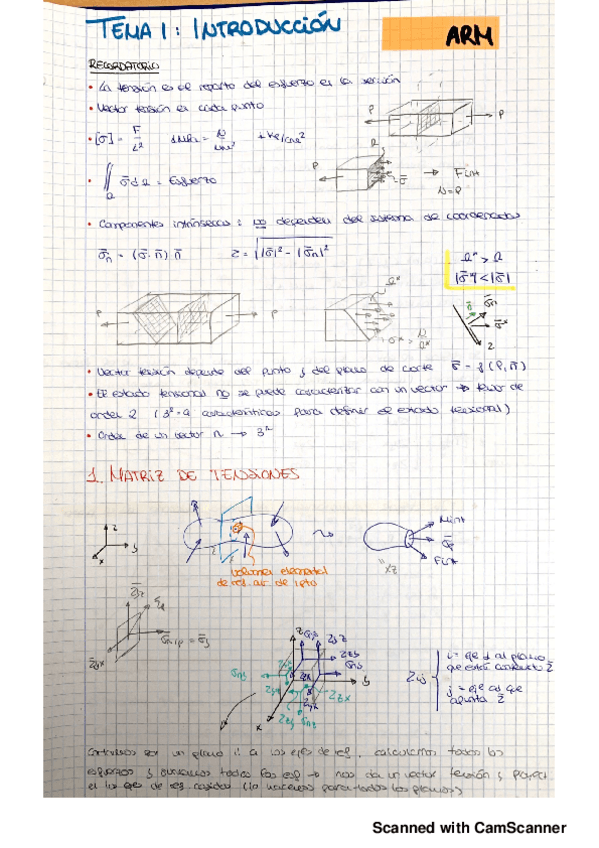 TEMA 1: INTRODUCCIÓN
ARM
RECORDATORIO
• La tensión es el reparto del esfuerzo en la sección
• Vector tensión en cada punto
P
P
• [σ] = F/L²
P
σ
Fint
N=P
• ∬ σ̄ dΩ = Esfuerzo
Ω
• Componentes intrínsecas: no dependen del sistema de coordenadas
σ̄n = (σ̄·n̄) n̄ τ = √(|σ̄|² - |σ̄n|²)
Ω* > Ω
|σ̄*| < |σ̄|
P
P
• Vector tensión depende del punto y del plano de corte σ̄ = f(P, n̄)
• El estado tensional no se puede caracterizar con un vector → tensor de
orden 2 (3² = 9 características para definir el estado tensional)
• Orden de un vector n → 3ⁿ
1. MATRIZ DE TENSIONES
z
y
x
Mint
Fint
xz
volumen elemental
z
y
x
i = eje ⊥ al plano
que está contenido
j = eje al que
apunta
Cortamos por un plano ⊥ a los ejes de ref, calculamos todos los
esfuerzos y sumamos todos los esf → nos da un vector tensión y
(lo hacemos para todos los planos)
Scanned with CamScanner